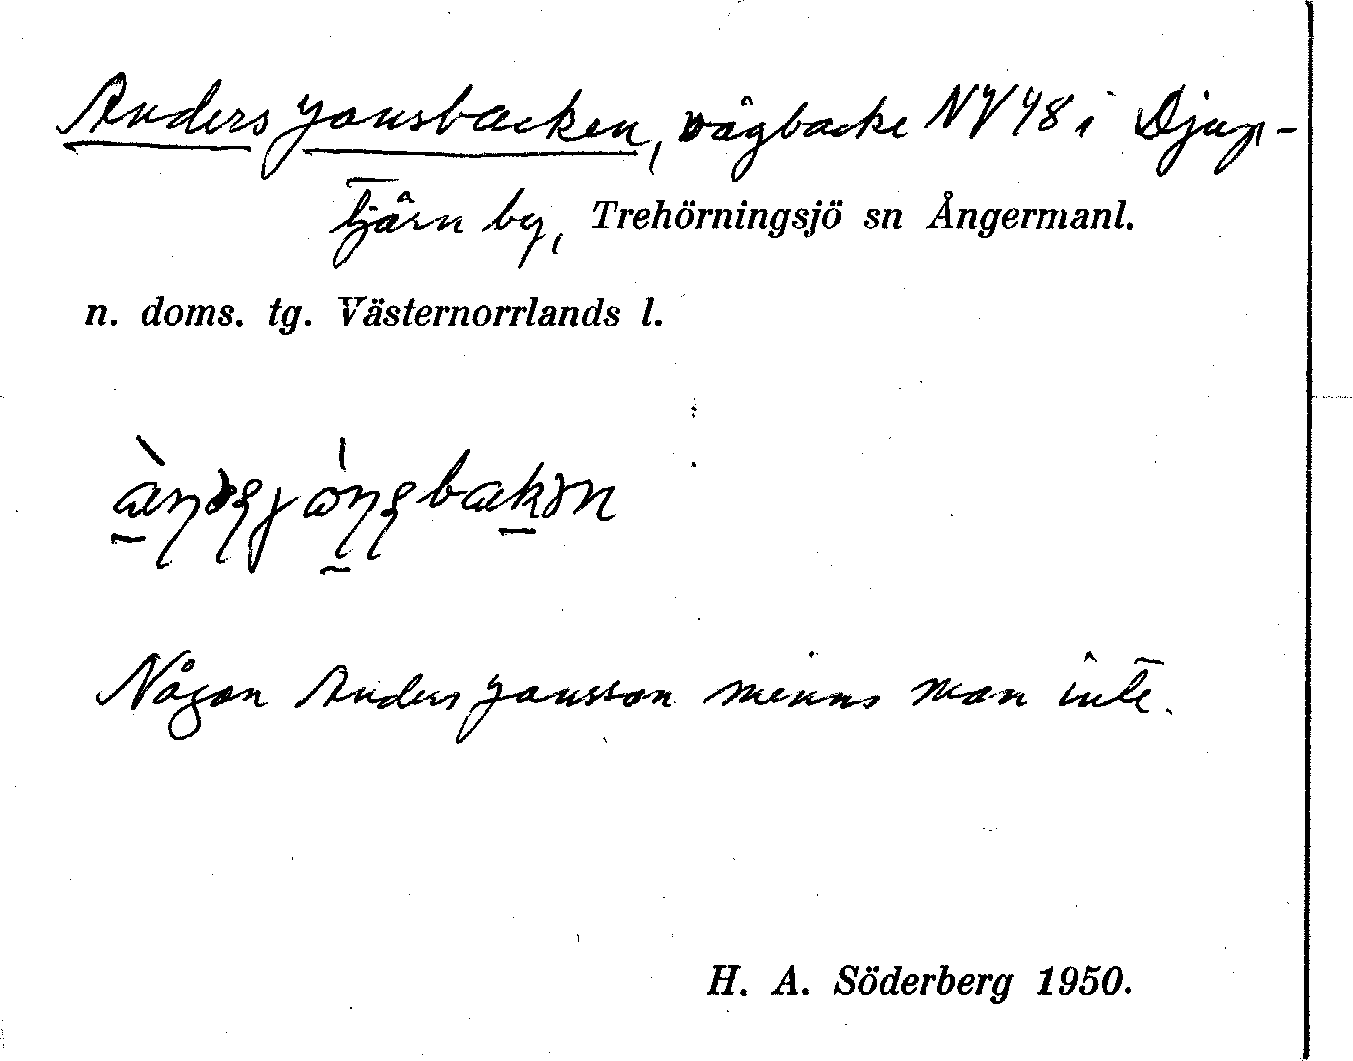 Anders Jonsbacken, vägbacke NV 48 i Djup-
tjärn by, Trehörningsjö sn Ångermanl.
n. doms. tg. Västernorrlands l.
Någon Anders Jonsson minns man inte.
H. A. Söderberg 1950.